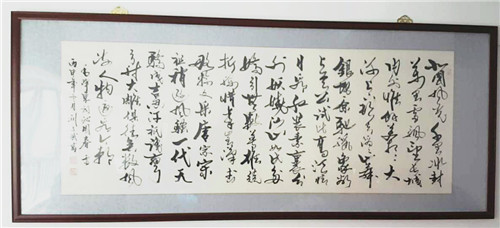 北國風光千里冰封
萬里雪飄望長城
内外惟餘莽莽大
河上下頓失滔滔山舞
銀蛇原馳蠟象欲
與天公試比高須晴
日看紅裝素裹分
外妖嬈江山如此多
嬌引無數英雄競
折腰惜秦皇漢武
略輸文采唐宗宋
祖稍遜風騷一代天
驕成吉思汗祇識彎
弓射大雕俱往矣數風
流人物還看今朝
毛澤東沁園春雪
丙申年月